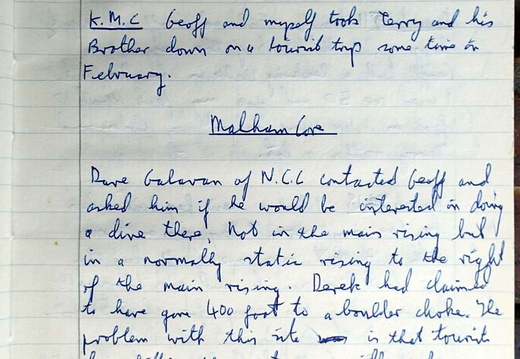 K.M.C Geoff and myself took Terry and his
Brother down on a tourist trip some time in
February.
Malham Cove
Dave Galavan of N.C.C contacted Geoff and
asked him if he would be interested in doing
a dive there, Not in the main rising but
in a normally static rising to the right
of the main rising. Derek had claimed
to have gone 400 foot to a boulder choke. The
problem with this site is that tourists